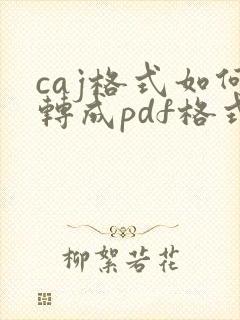 caj格式如何
轉成pdf格式
柳絮若花